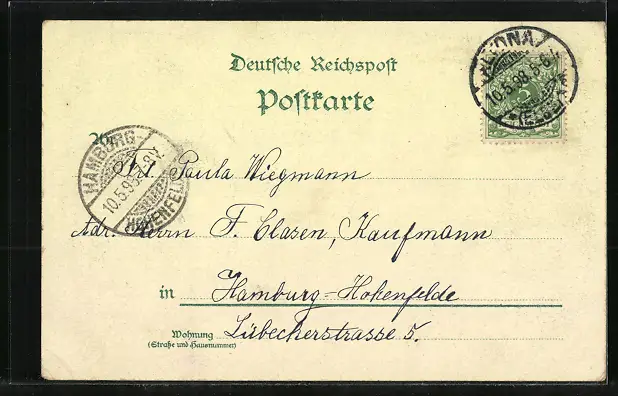 Deutsche Reichspost
Postkarte
ALTONA
10.5.98.5-6
(ELBE)
5
An
HAMBURG-
10.5.98
HOHENFELDE
Frl. Paula Wiegmann
Adr. Herrn F. Clasen, Kaufmann
in Hamburg-Hohenfelde
Wohnung Lübeckerstrasse 5.
(Straße und Hausnummer)